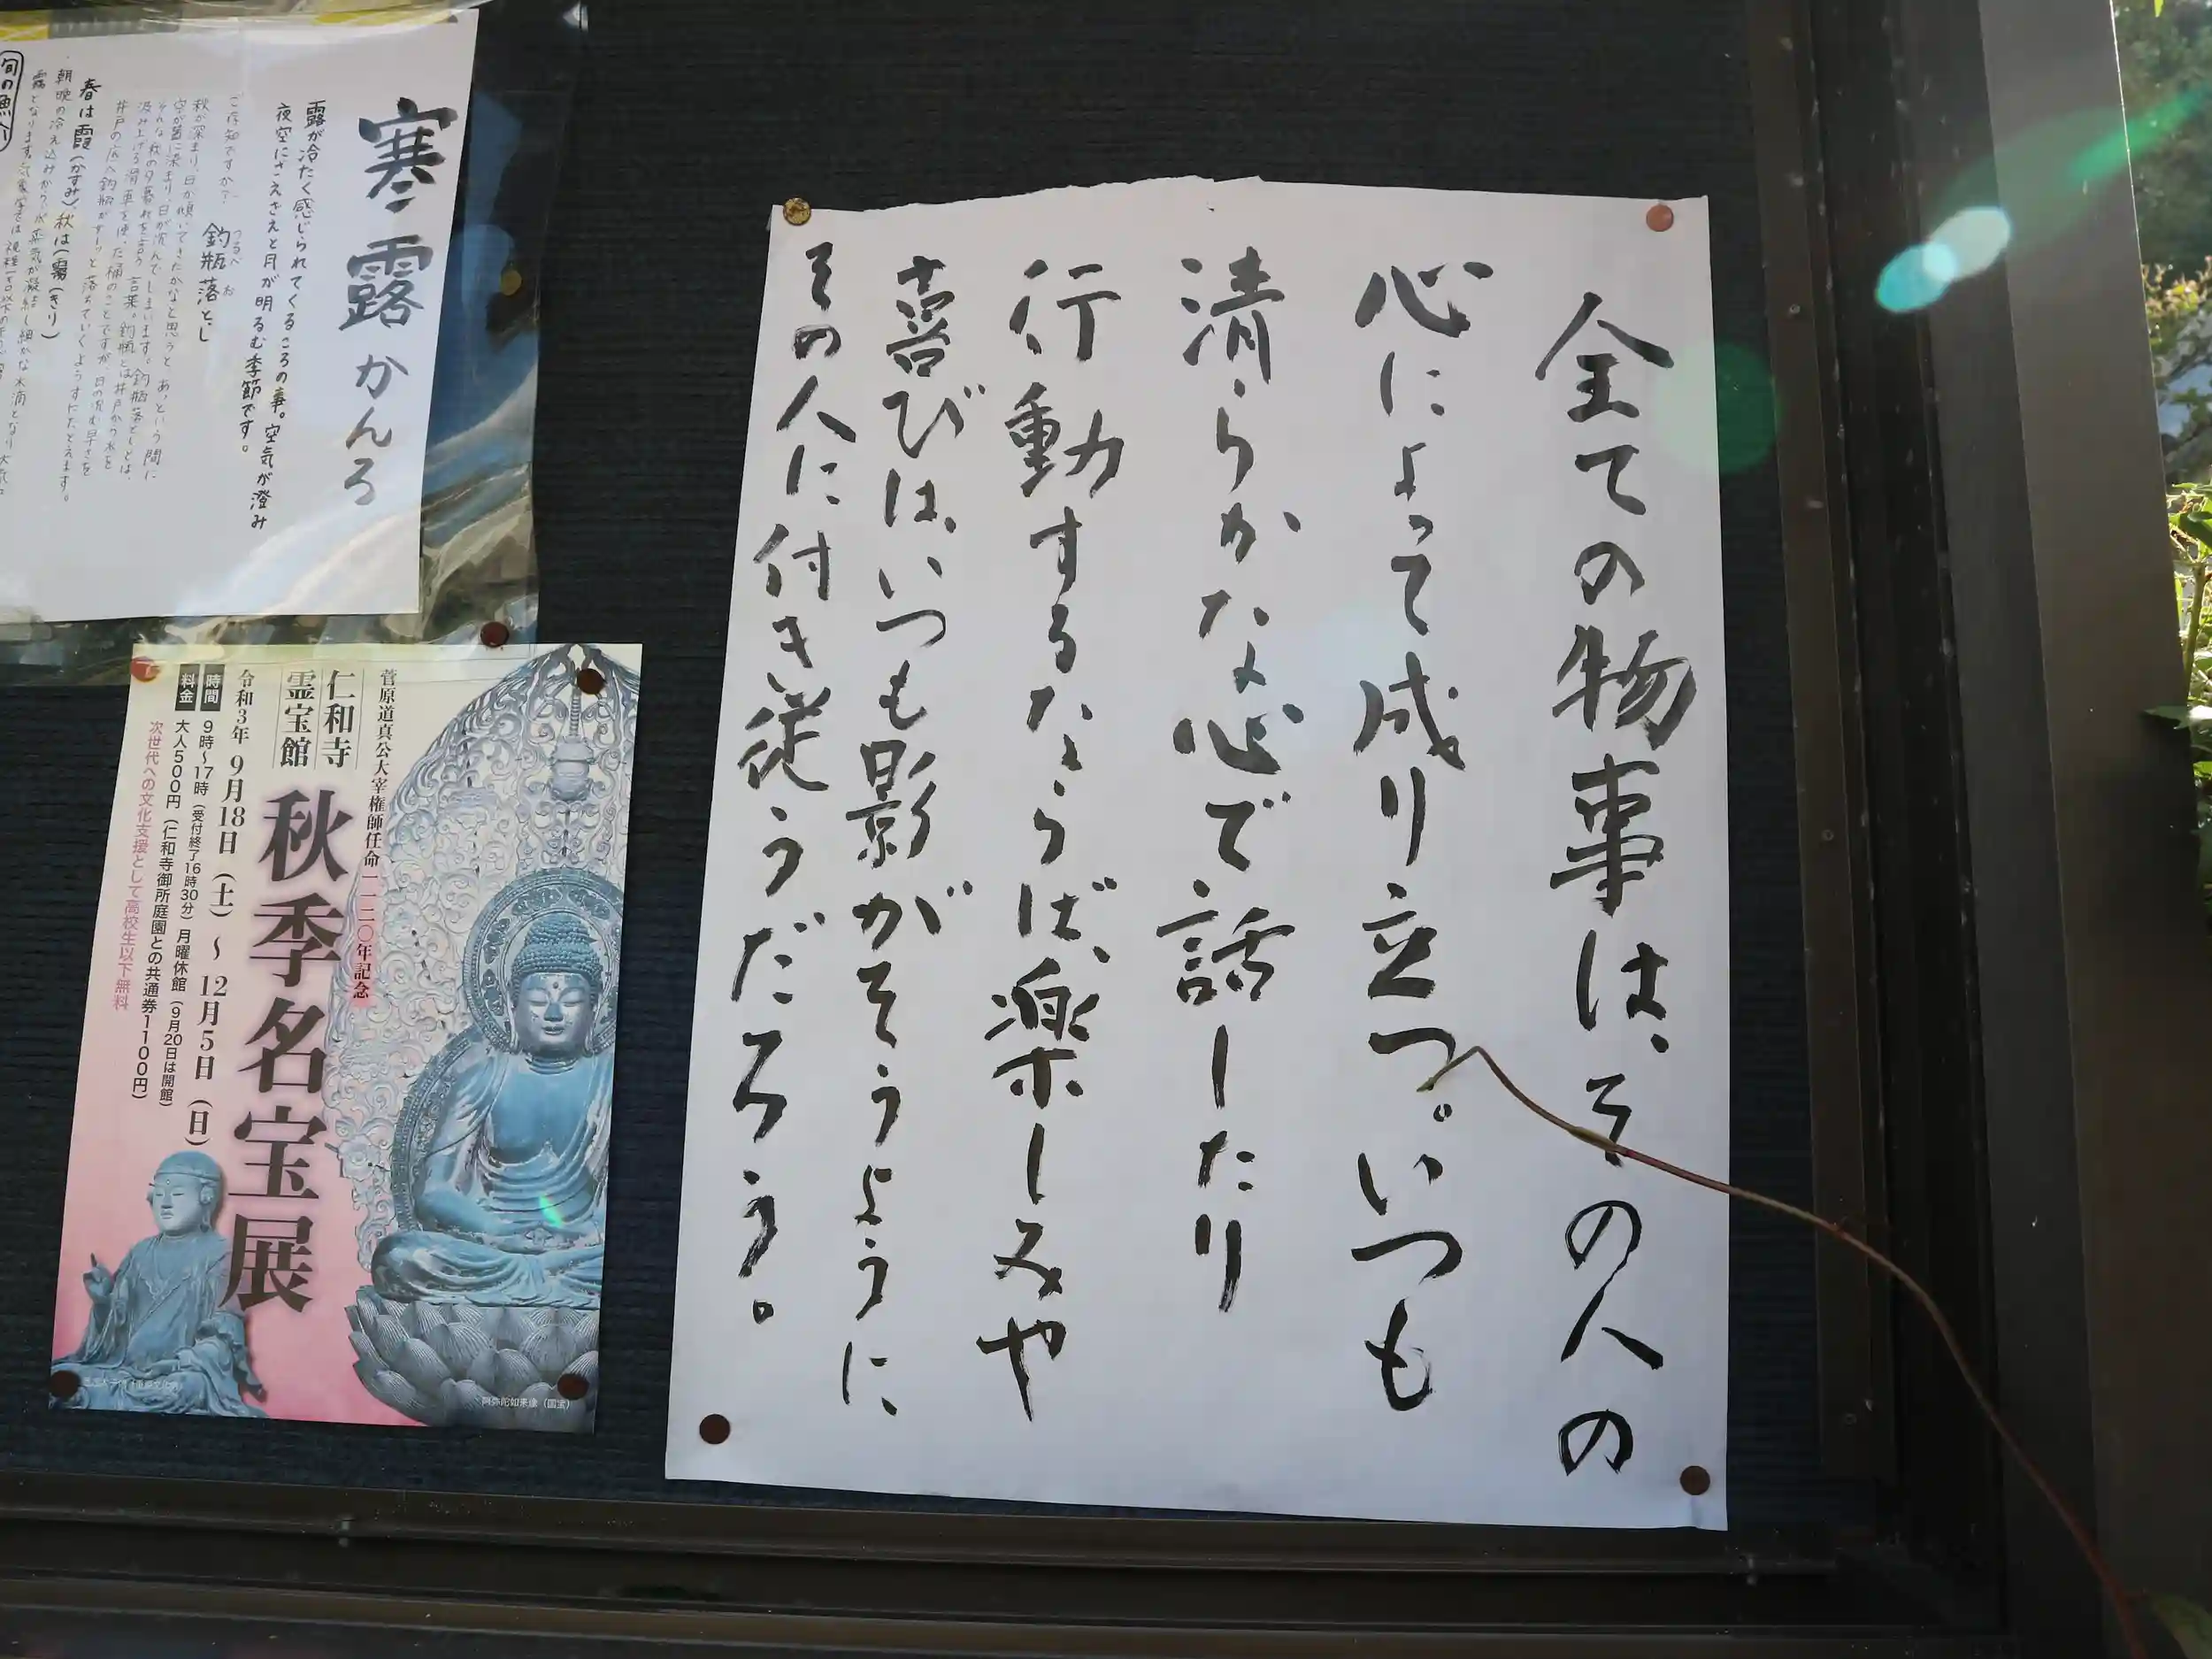 全ての物事は、その人の
心によって成り立つ。いつも
清らかな心で話したり
行動するならば、楽しみや
喜びは、いつも影がそうように
その人に付き従うだろう。
寒露 かんろ
露が冷たく感じられてくるころの事。空気が澄み
夜空にさえざえと月が明るむ季節です。
ご存知ですか?
釣瓶落とし
つるべ お
秋が深まり、日が傾いてきたかなと思うと あっという間に
空が茜に染まり、日が沈んでしまいます。
そんな秋の夕暮れを言う言葉。釣瓶落としとは、
汲み上げる滑車を使った桶のことですが、日の沈む早さを
春は霞(かすみ)、秋は(霧(きり)
菅原道真公大宰権帥任命一一二〇年記念
仁和寺
霊宝館
秋季名宝展
令和3年 9月18日(土)~12月5日(日)
時間 9時~17時(受付終了16時30分)月曜休館(9月20日は開館)
料金 大人500円(仁和寺御所庭園との共通券1100円)
次世代への文化支援として高校生以下無料
阿弥陀如来像(国宝)